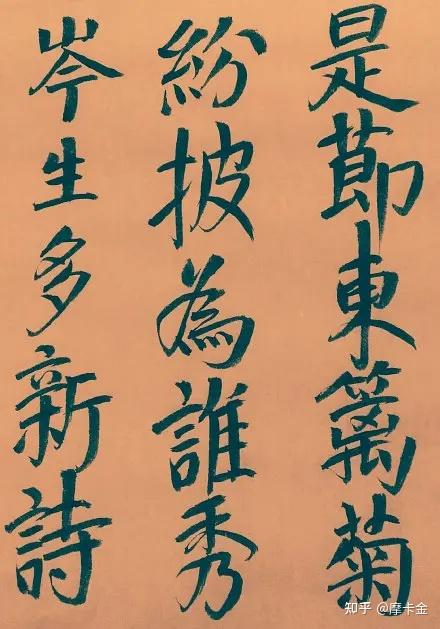 是節東籬菊
紛披為誰秀
岑生多新詩
知乎 @摩卡金